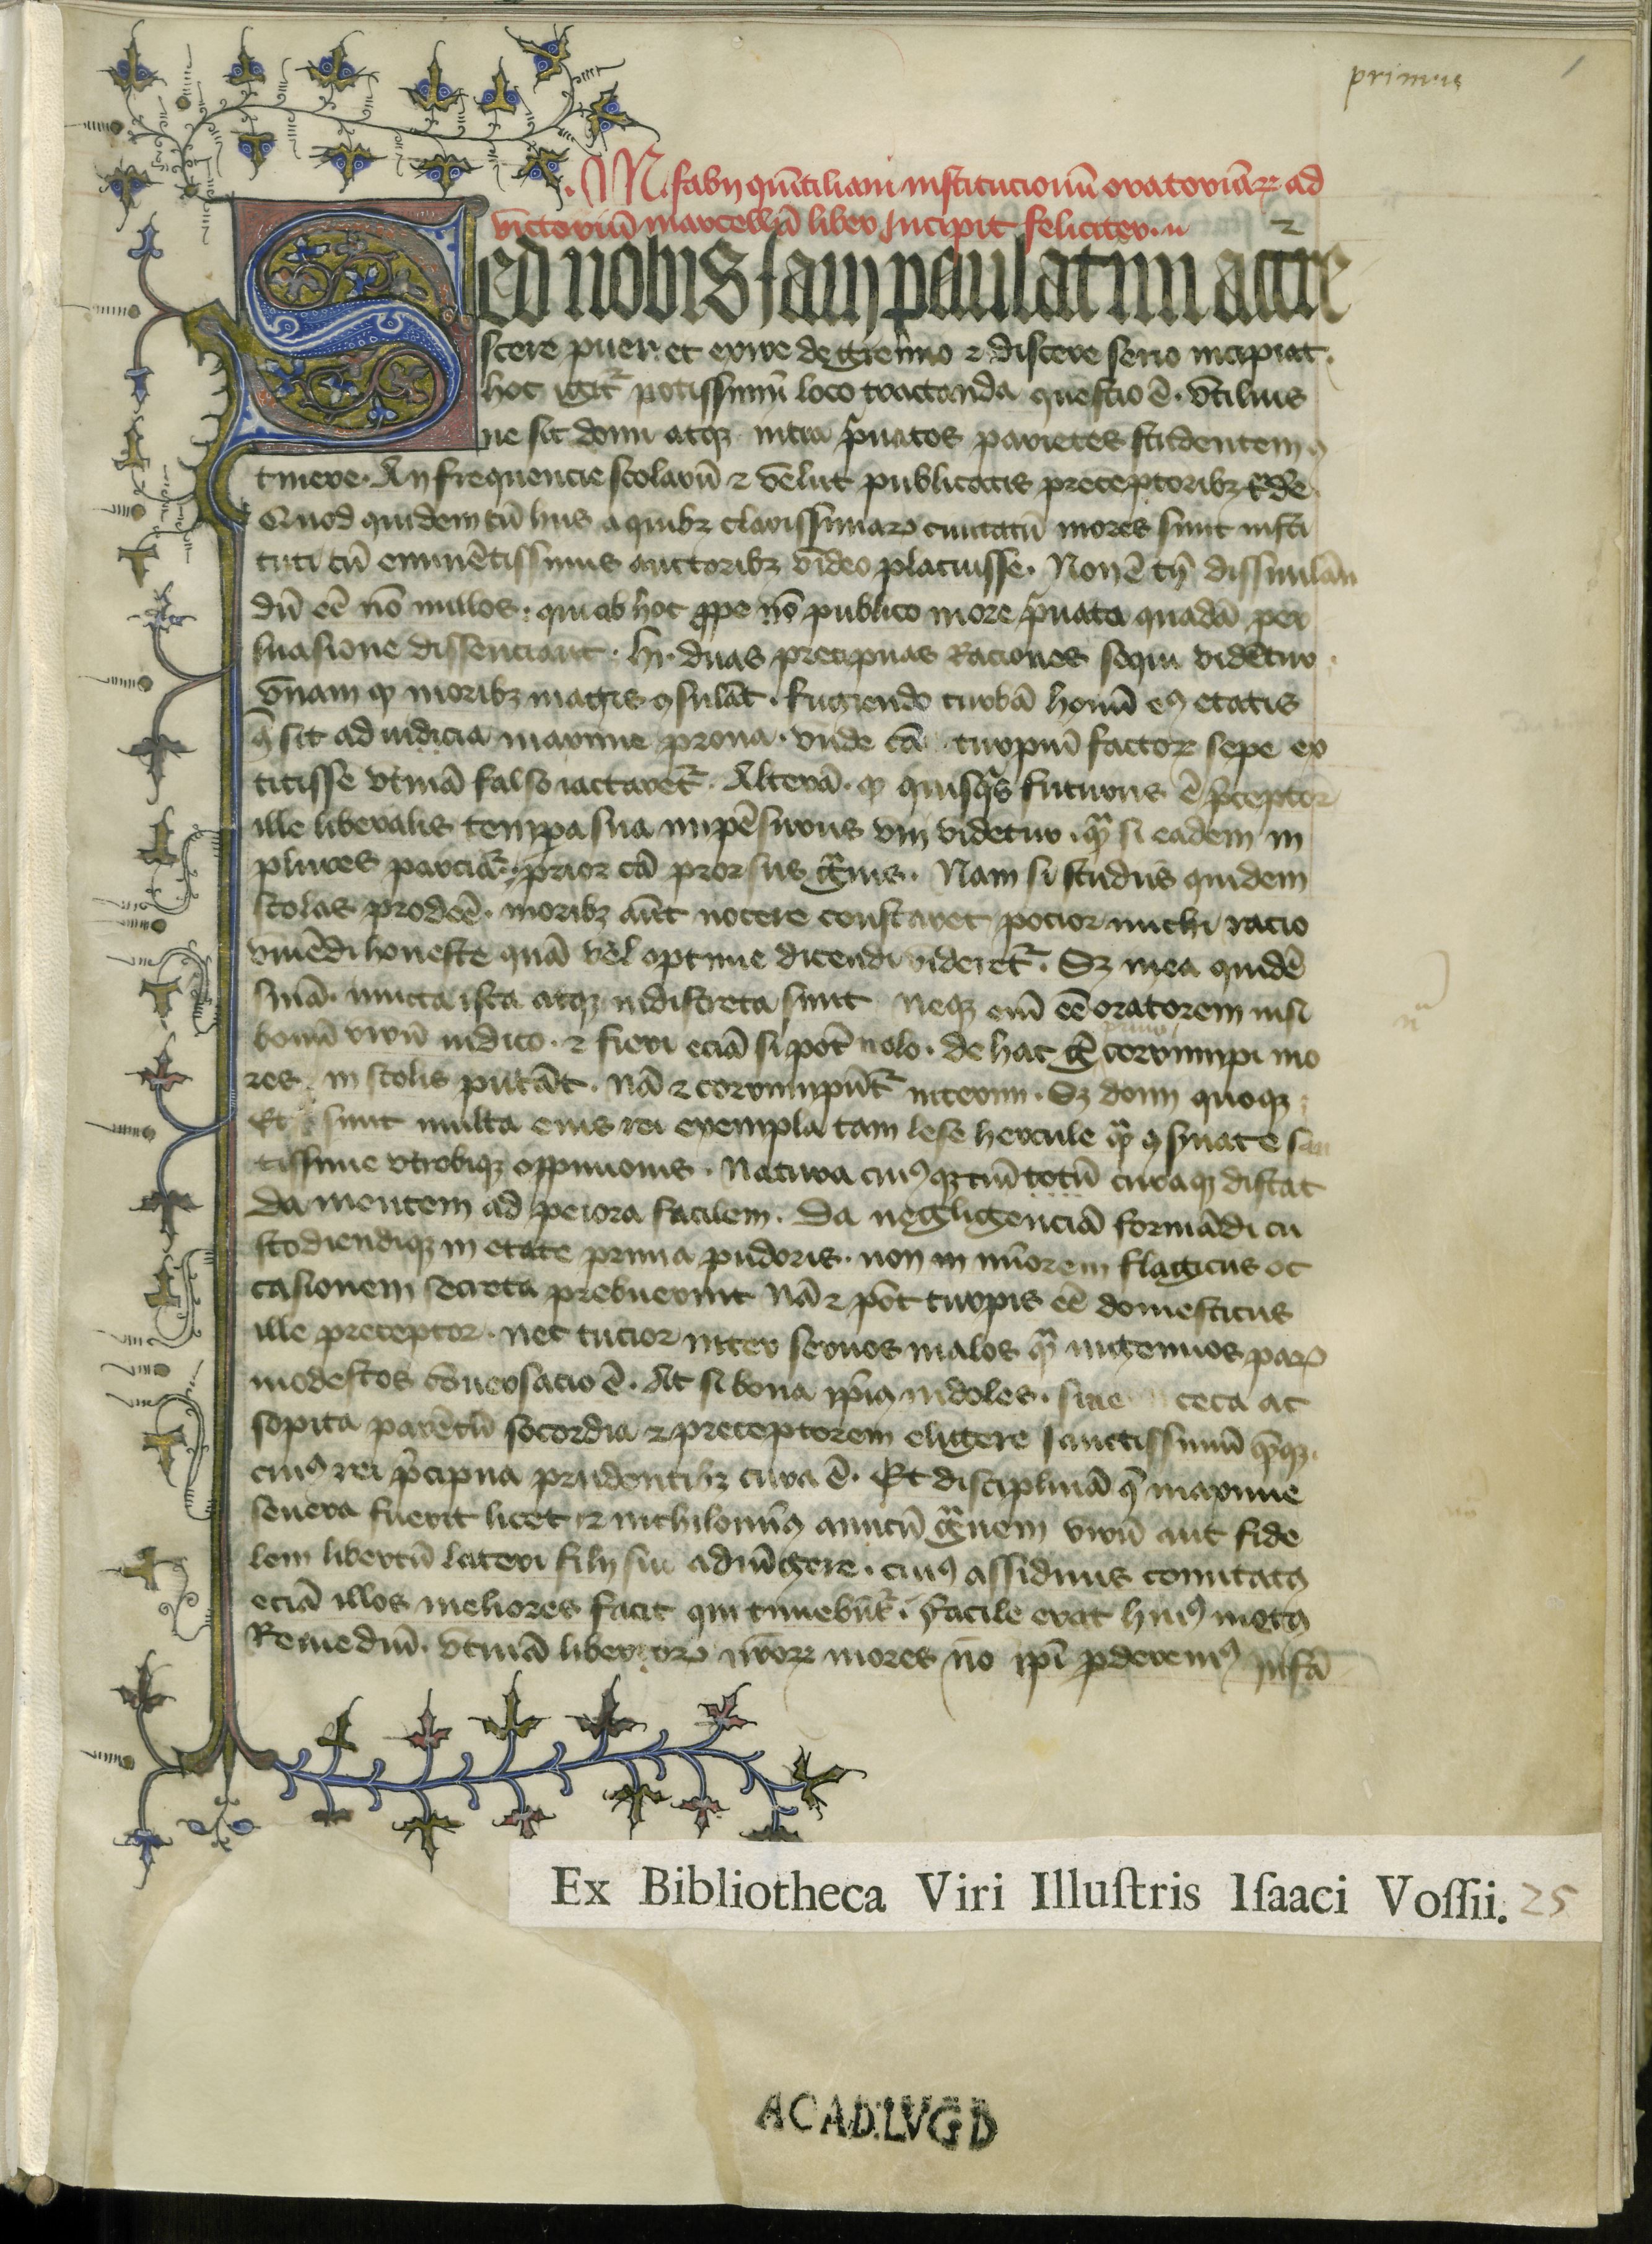 primus
.M. fabii quītiliani institucionū oratoriaꝝ ad
victoriū marcellū liber Incipit feliciter. ıı
Sed nobis iam paulatim accre
scere puer. et exire de gremio ⁊ discere serio incipiat.
hoc igit᷑ potissimū loco tractanda questio ē. vtilius
ne sit domi atqꝫ intra pͥuatos parietes studentem ꝯ
tinere. An frequencie scolarū ⁊ velut publicatis preceptoribꝫ t͛de͛
Quod quidem cū hiis a quibꝫ clarissimaꝝ ciuitatū mores sunt insti
tuti cū eminētissimis auctoribꝫ video placuisse. Non ē tn̄ dissimulan
dū eē nō nullos. qui ab hoc ꝓpe nō publico more pͥuata quadā per
suasione dissenciant. hi. duas precipuas Raciones sequi vidētur.
vnam ꝙ moribꝫ magis ꝯsulāt. fugiendo turbā homī eiꝰ etatis
q̄ sit ad iudicia maxime prona. vnde cā turpiū factoꝝ sepe ex
titisse vtinā falso iactaret᷑. Alterā. ꝙ quisqͥs futurus ē p̄ceptor
ille liberalis tempa sua impēsurus vni videtur. qᷓ si eadem in
plures parciat᷑. prior cā prorsus gᷓuis. Nam si studiis quidem
scolas prodeē. moribꝫ aūt nocere constaret pocior michi racio
viuēdi honeste quā vel optime dicendi videret᷑. Sꝫ mea quidē
sniā. iuncta ista atqꝫ indiscreta sunt neqꝫ eni eē oratorem nisi
bonū virū iudico. ⁊ fieri eciā si pot̄ nolo. de hac g̊ corrumpi mo
res in scolis putāt. Nā ⁊ corrumpūt᷑ interim. Sꝫ domi quoqꝫ
Et sunt multa eius rei exempla tam lese hercule qᷓ ꝯseruate san
tissime vtrobiqꝫ oppinionis. Natura cuiꝰqꝫ cuī totū curaqꝫ distat
Da mentem ad peiora facilem. Da negligenciā formādi cu
stodiendiqꝫ in etate prima pudoris. non minorem flagiciis oc
casionem secreta prebuerint Nā ⁊ pōt turpis eē domesticus
ille preceptor. nec tucior inter seruos malos qᷓ ingenuos paꝝ
modestos cōuersacio ē. At si bona ipīꝰ indoles. si ne ceca ac
sopita parētū socordia ⁊ preceptorem eligere sanctissimū quēqꝫ.
cuiꝰ rei p̄cipua prudentibꝫ cura ē. Et disciplinā q̄ maxime
seuera fuerit licet ⁊ nichilominꝰ amicū gᷓuem virū aut fide
lem libertū lateri filii sui adiūgere. cuiꝰ assiduus comitatꝰ
eciā illos meliores facit qui timebūt᷑. facile erat huiꝰ metꝰ
Remediū. vtinā liberoꝝ nr̄oꝝ mores nō ipī ꝑderemꝰ Infā
Ex Bibliotheca Viri Illuſtris Iſaaci Voſſii. 25
ACAD. LVGD